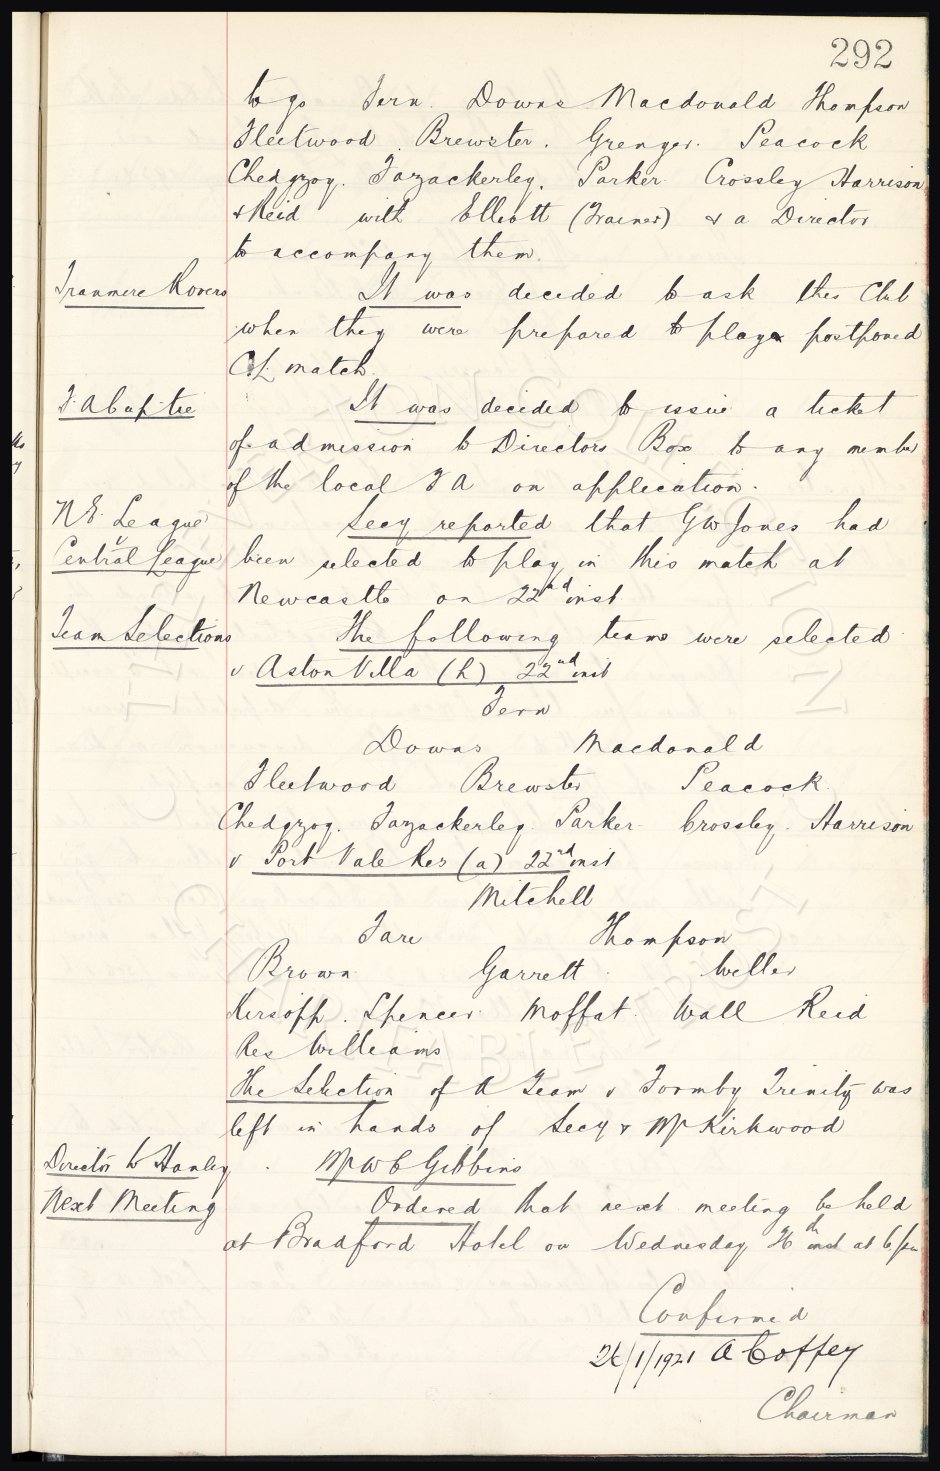 292
to go Fern. Downs Macdonald Thompson
Fleetwood. Brewster. Grenyer. Peacock
Chedgzoy. Fazackerley. Parker Crossley Harrison
& Reid with Elliott (Trainer) & a Director
to accompany them.
Tranmere Rovers It was decided to ask this Club
when they were prepared to play postponed
C.L. match.
F.A Cup tie It was decided to issue a ticket
of admission to Directors Box to any member
of the local F A on application.
N E. League Secy reported that G W Jones had
v
Central League been selected to play in this match at
Newcastle on 22nd inst
Team Selections The following teams were selected
v Aston Villa (h) 22nd inst
Fern
Downs Macdonald
Fleetwood Brewster Peacock.
Chedgzoy. Fazackerley. Parker. Crossley. Harrison
v Port Vale Res (a) 22nd inst
Mitchell
Fare Thompson
Brown Garrett. Weller
Kirsopp. Spencer. Moffat. Wall Reid
Res Williams
The Selection of A Team v Formby Trinity was
left in hands of Secy & Mr Kirkwood
Director to Hanley. Mr W C Gibbins
Next Meeting Ordered that next meeting be held
at Bradford Hotel on Wednesday 26th inst at 6 pm
Confirmed
26/1/1921 A Coffey
Chairman